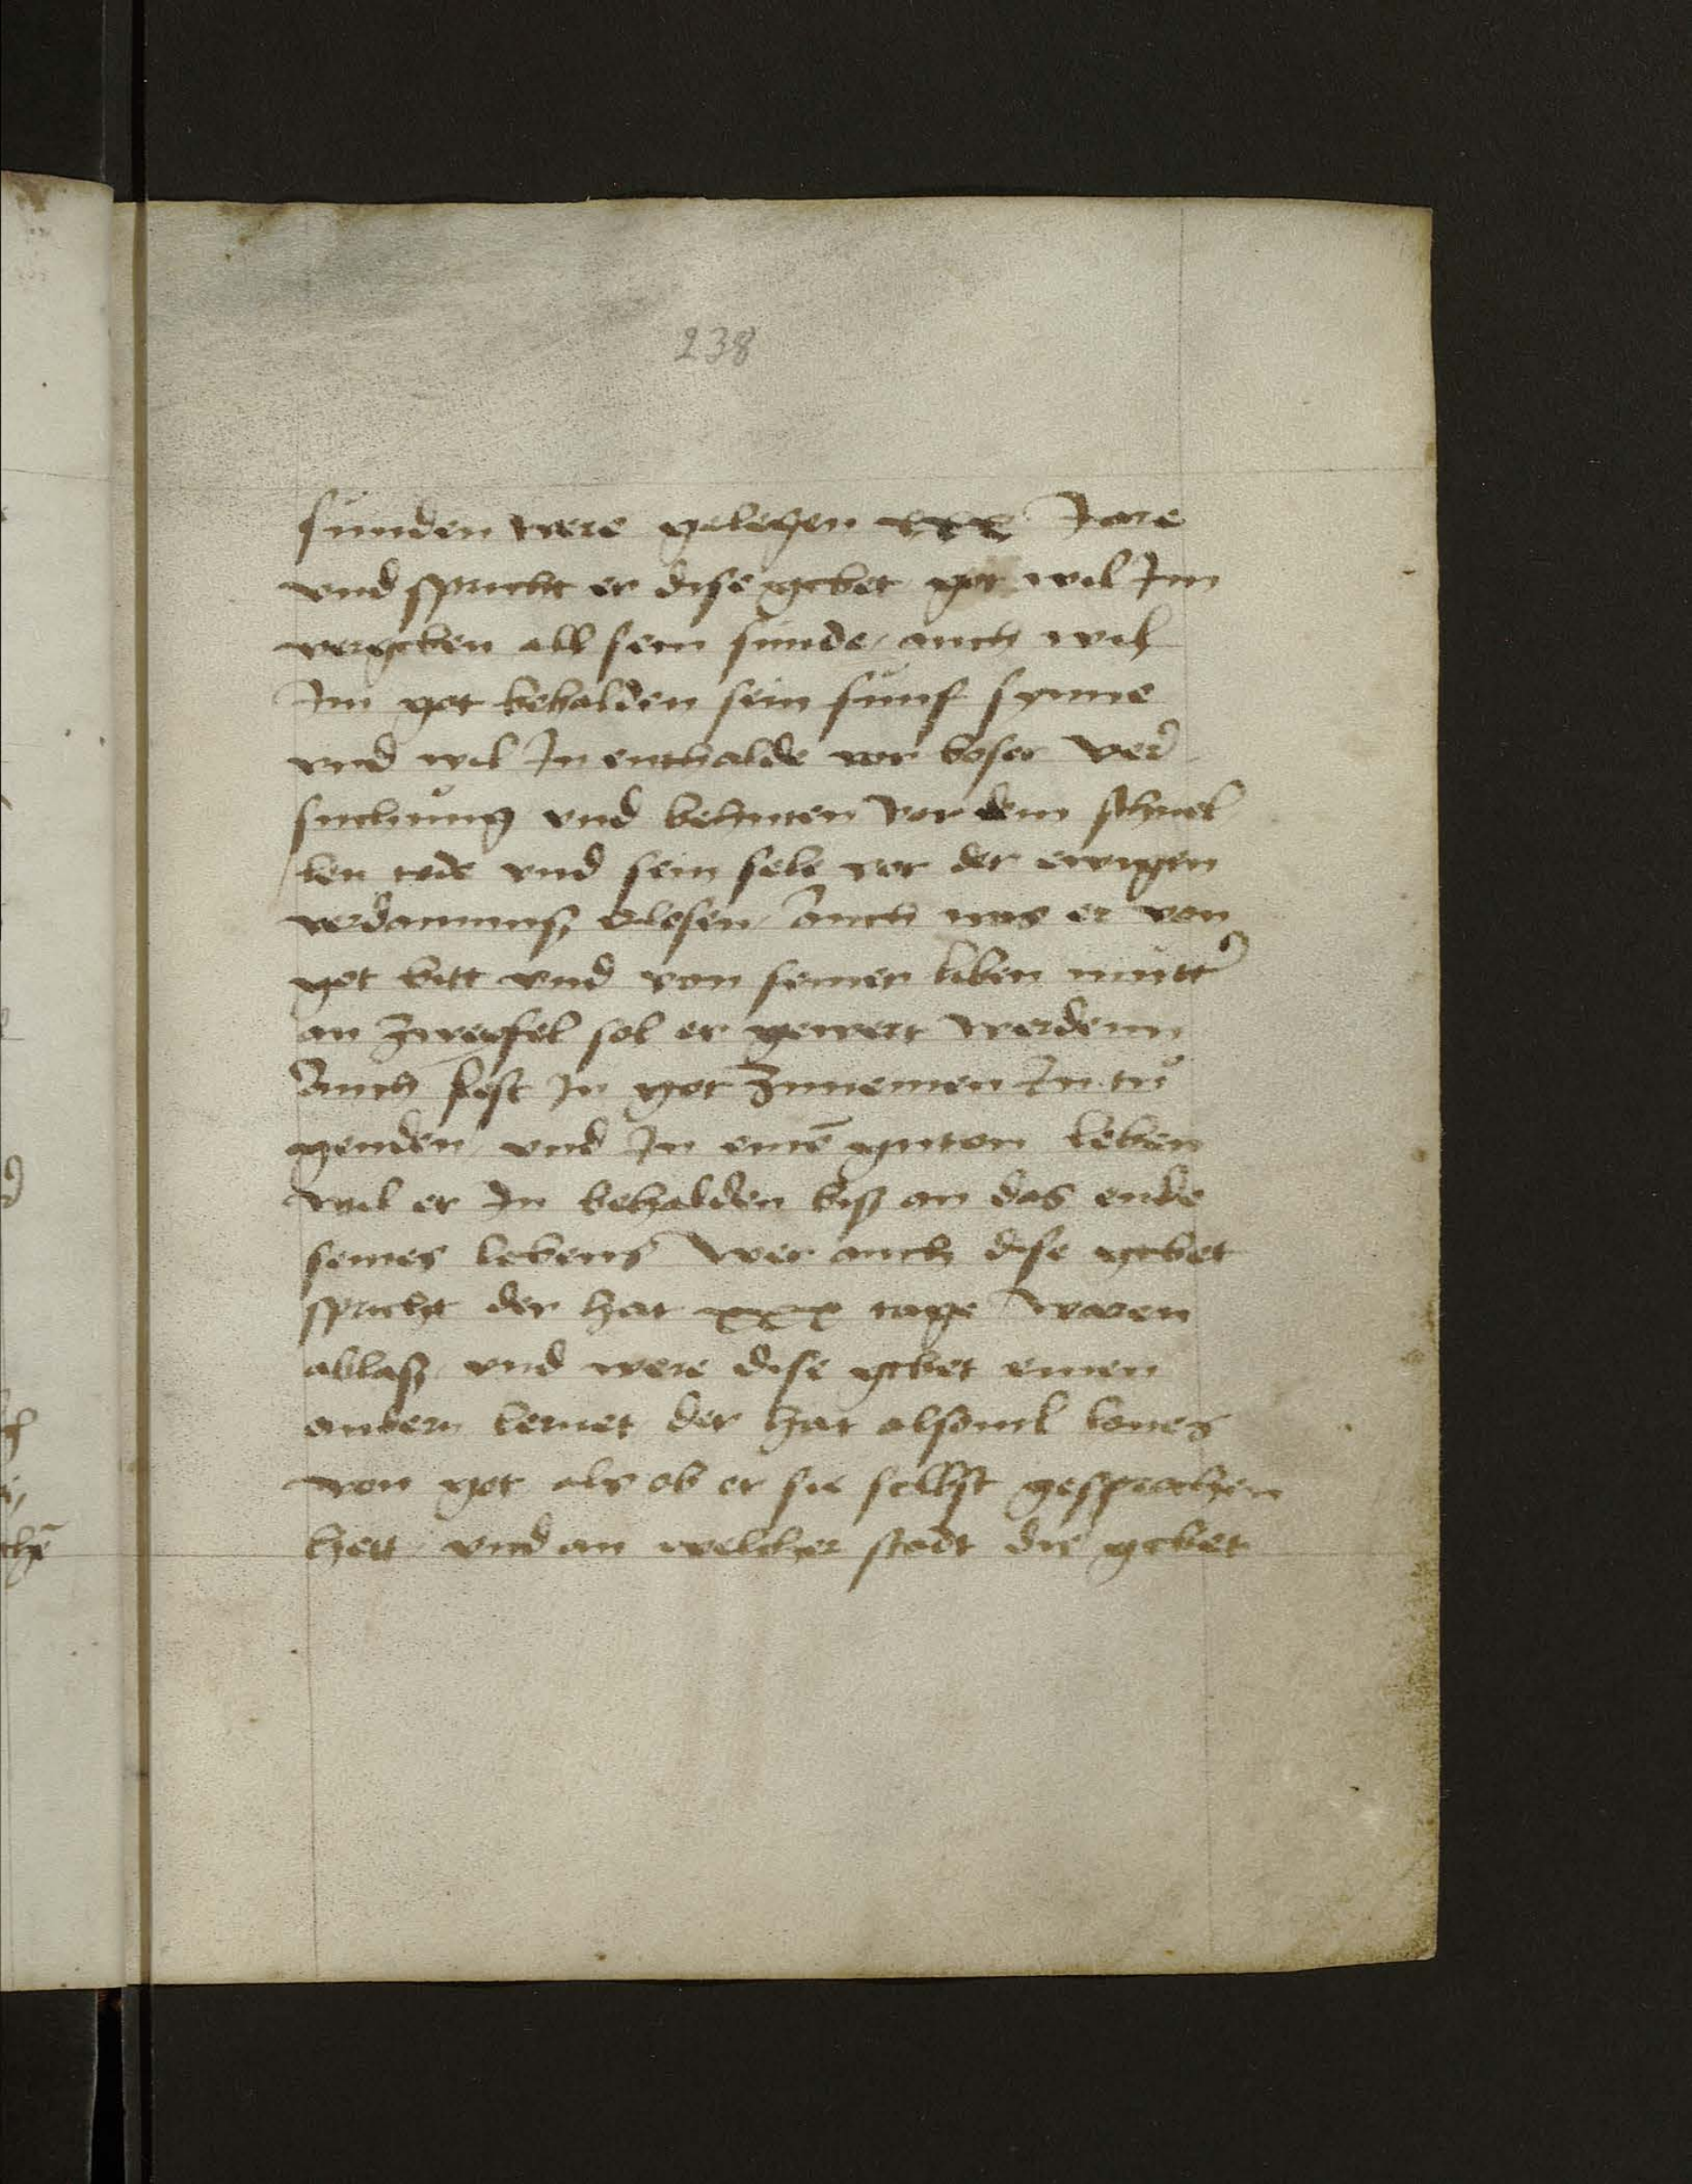 238
sunden were gelegen xxx Jare
vnd spricht er dise gebet got wil Im
vergeben all sein sunde / auch wil
Im got behalden sein funf synne
vnd wil In enthalde vor boser ver
suchung vnd behuten vor dem schnel
len tode vnd sein sele vor der ewigen
verdamnuß erlosen / auch was er von
got bitt vnd von seiner liben mutter
an zweyfel sol er gewert werdenn
Auch fest In got zunemen In tu
genden / vnd In eine guten leben
wil er In behalden biß an das ende
seines lebens Wer auch dise gebet
spricht der hat xxx tage waren
ablaß / vnd were dise gebet einen
andern lernet / der hat alsouil lones
von got als ob er sie selbst gesprochen
hett / vnd an welcher stadt die gebet